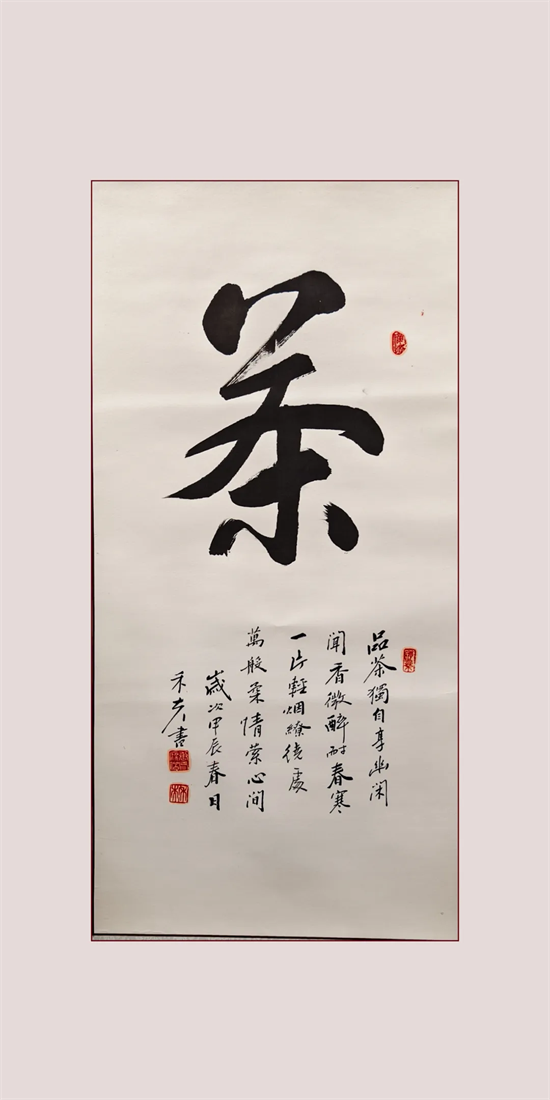 茶
品茶獨自享幽闲
聞香微醉耐春寒
一片輕烟繚绕處
萬般柔情縈心间
歲次甲辰春日
禾夫書